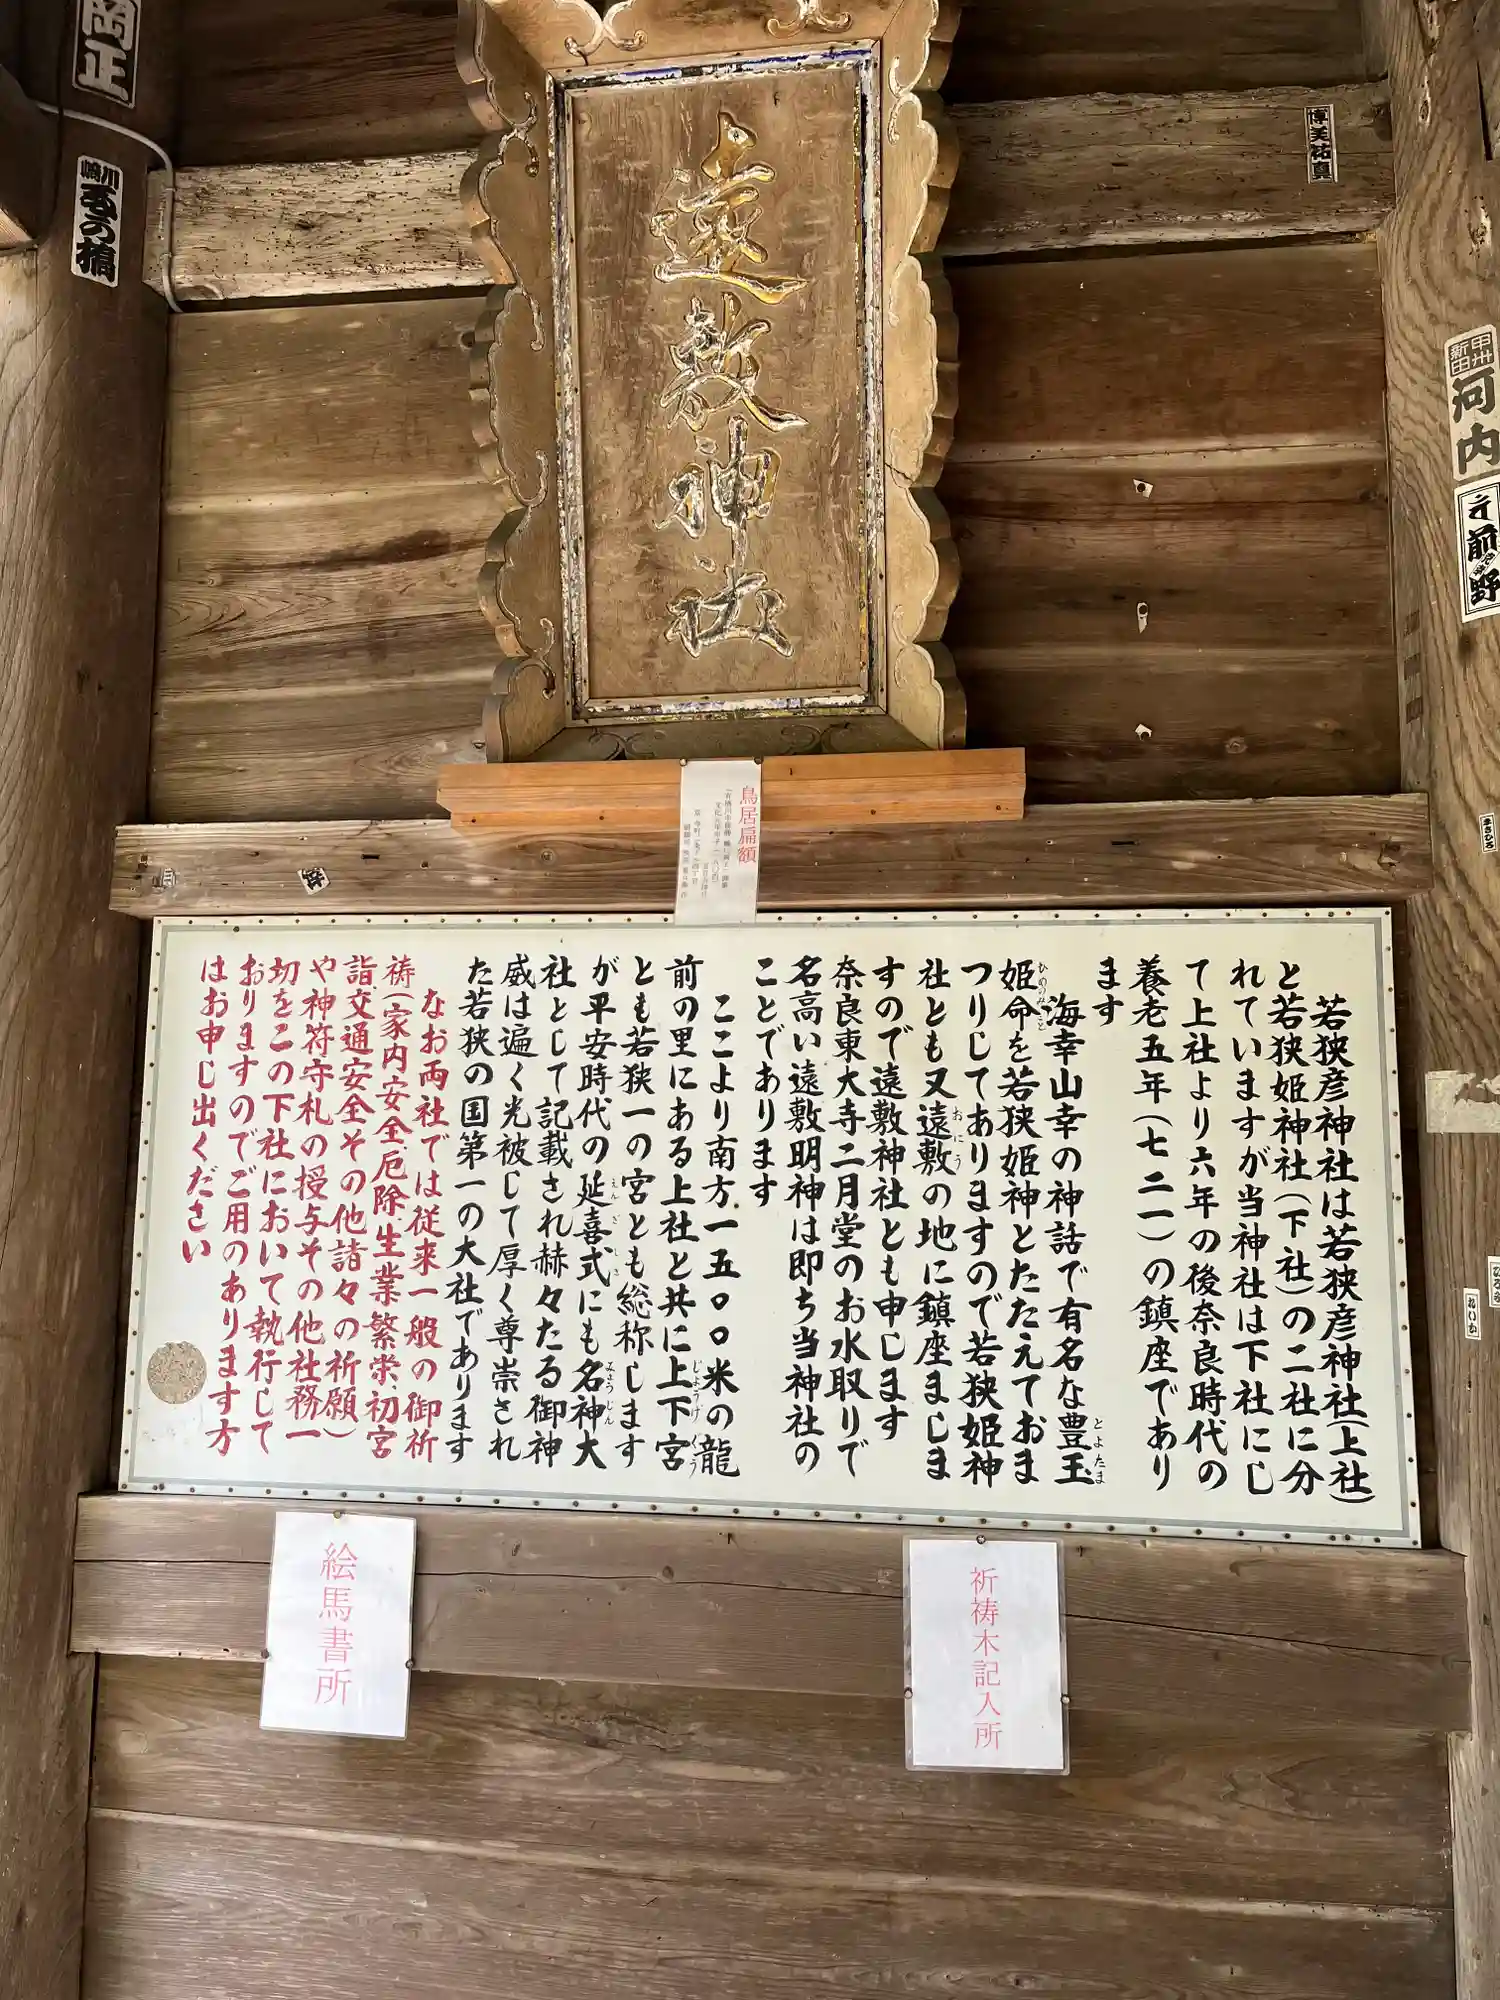 遠敷神社
鳥居扁額
若狭彦神社は若狭彦神社(上社)
と若狭姫神社(下社)の二社に分
れていますが当神社は下社にし
て上社より六年の後奈良時代の
養老五年(七二一)の鎮座であり
ます
海幸山幸の神話で有名な豊玉
とよたま
姫命を若狭姫神とたたえておま
ひめのみこと
つりしてありますので若狭姫神
社とも又遠敷の地に鎮座ましま
おにう
すので遠敷神社とも申します
奈良東大寺二月堂のお水取りで
名高い遠敷明神は即ち当神社の
ことであります
ここより南方一五〇〇米の龍
前の里にある上社と共に上下宮
じょうげくう
とも若狭一の宮とも総称します
が平安時代の延喜式にも名神大
えんぎしき
みょうじん
社として記載され赫々たる御神
威は遍く光被して厚く尊崇され
た若狭の国第一の大社であります
なお両社では従来一般の御祈
祷(家内安全、厄除、生業繁栄、初宮
詣、交通安全その他諸々の祈願)
や神符守札の授与その他社務一
切をこの下社において執行して
おりますのでご用のあります方
はお申し出ください
絵馬書所
祈祷木記入所
岡正
川崎
博美祐真
甲州
新田
河内
前野
まさひろ